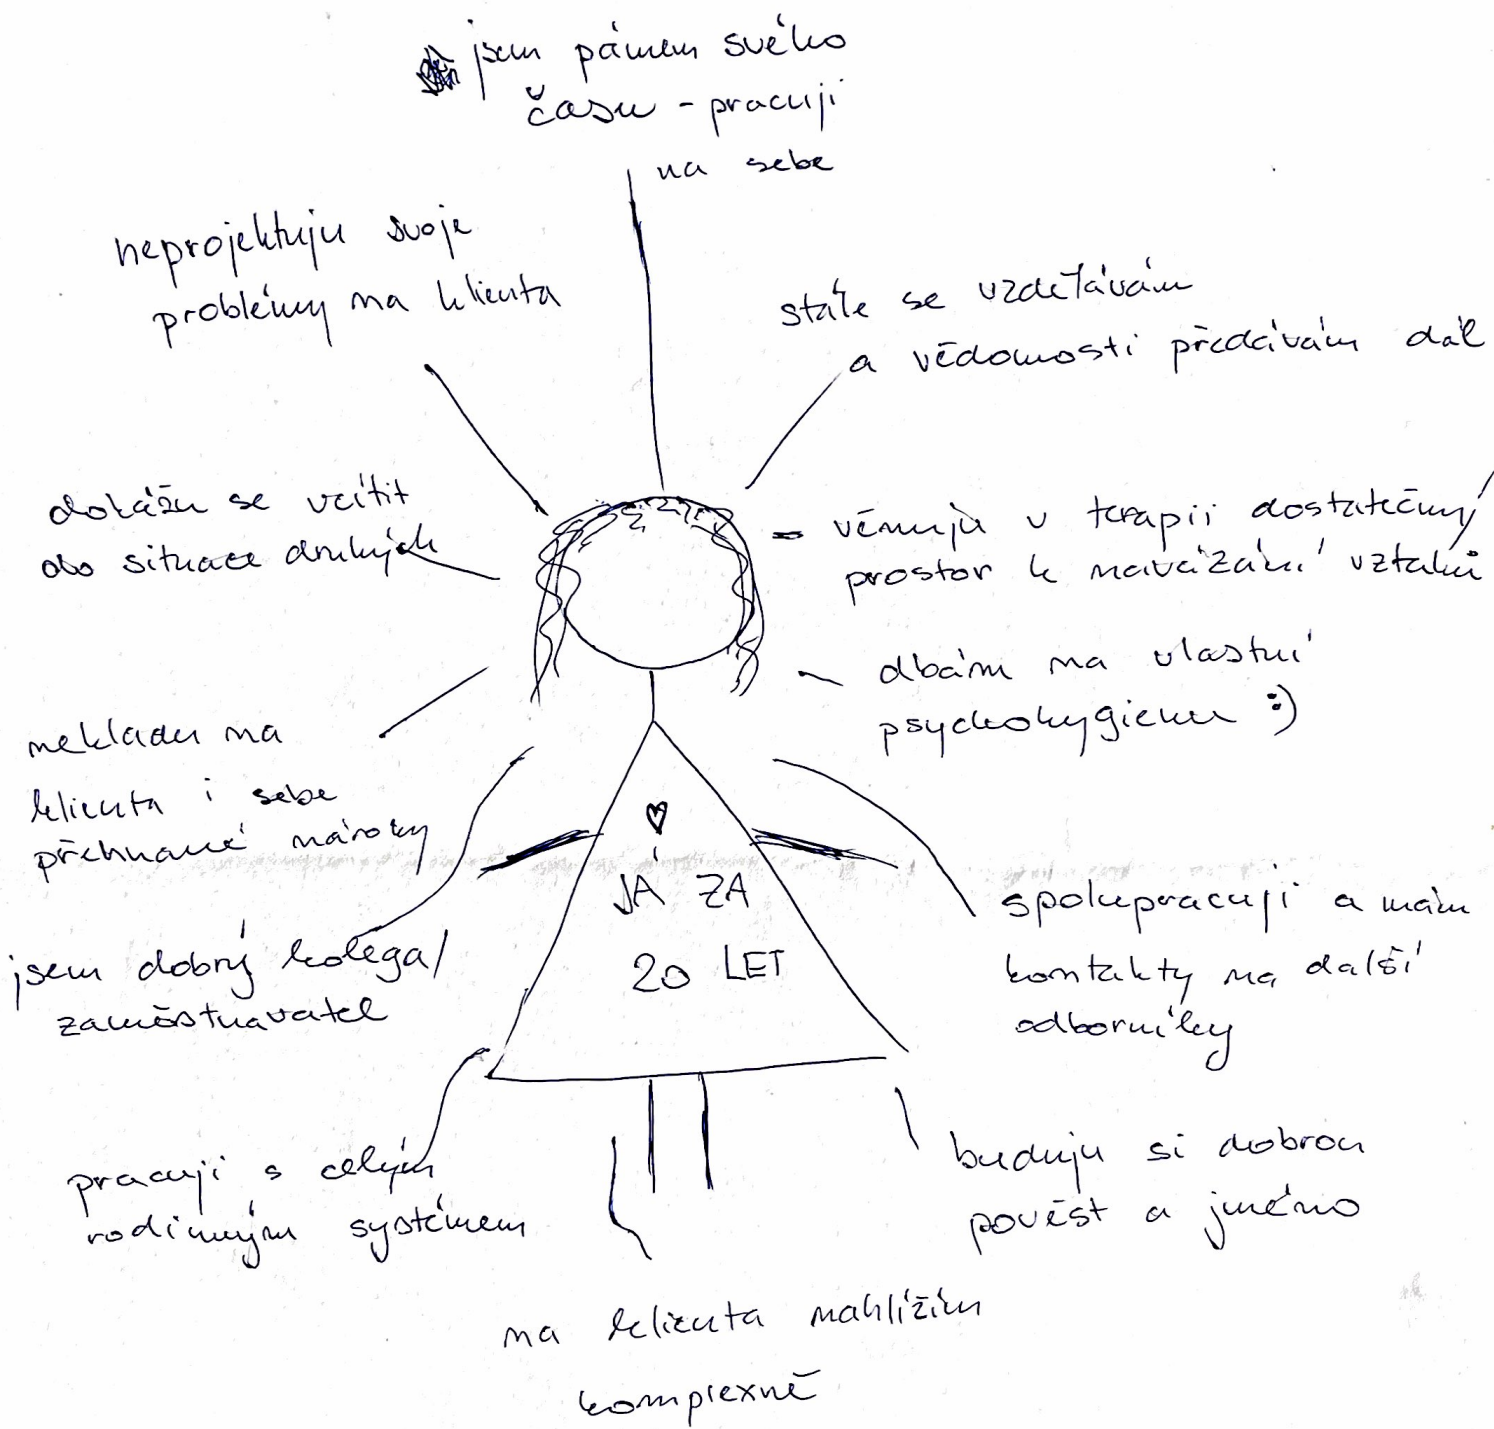 jsem pánem svého
času - pracuji
na sebe
neprojektuju svoje
problémy na klienta
stále se vzdělávám
a vědomosti předávám dál
dokážu se vcítit
do situace druhých
- věnuju v terapii dostatečný
prostor k navázání vztahů
dbám na vlastní
psychohygienu :)
nekladu na
klienta i sebe
přehnané nároky
JÁ ZA
20 LET
jsem dobrý kolega/
zaměstnavatel
spolupracuji a mám
kontakty na další
odborníky
pracuji s celým
rodinným systémem
buduju si dobrou
pověst a jméno
na klienta nahlížím
komplexně